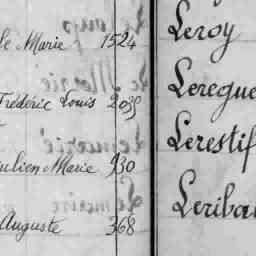 le Marie 1524
Frédéric Louis 2039
Julien Marie 930
Auguste 368
Leroy
Leregue
Lerestif
Leribau